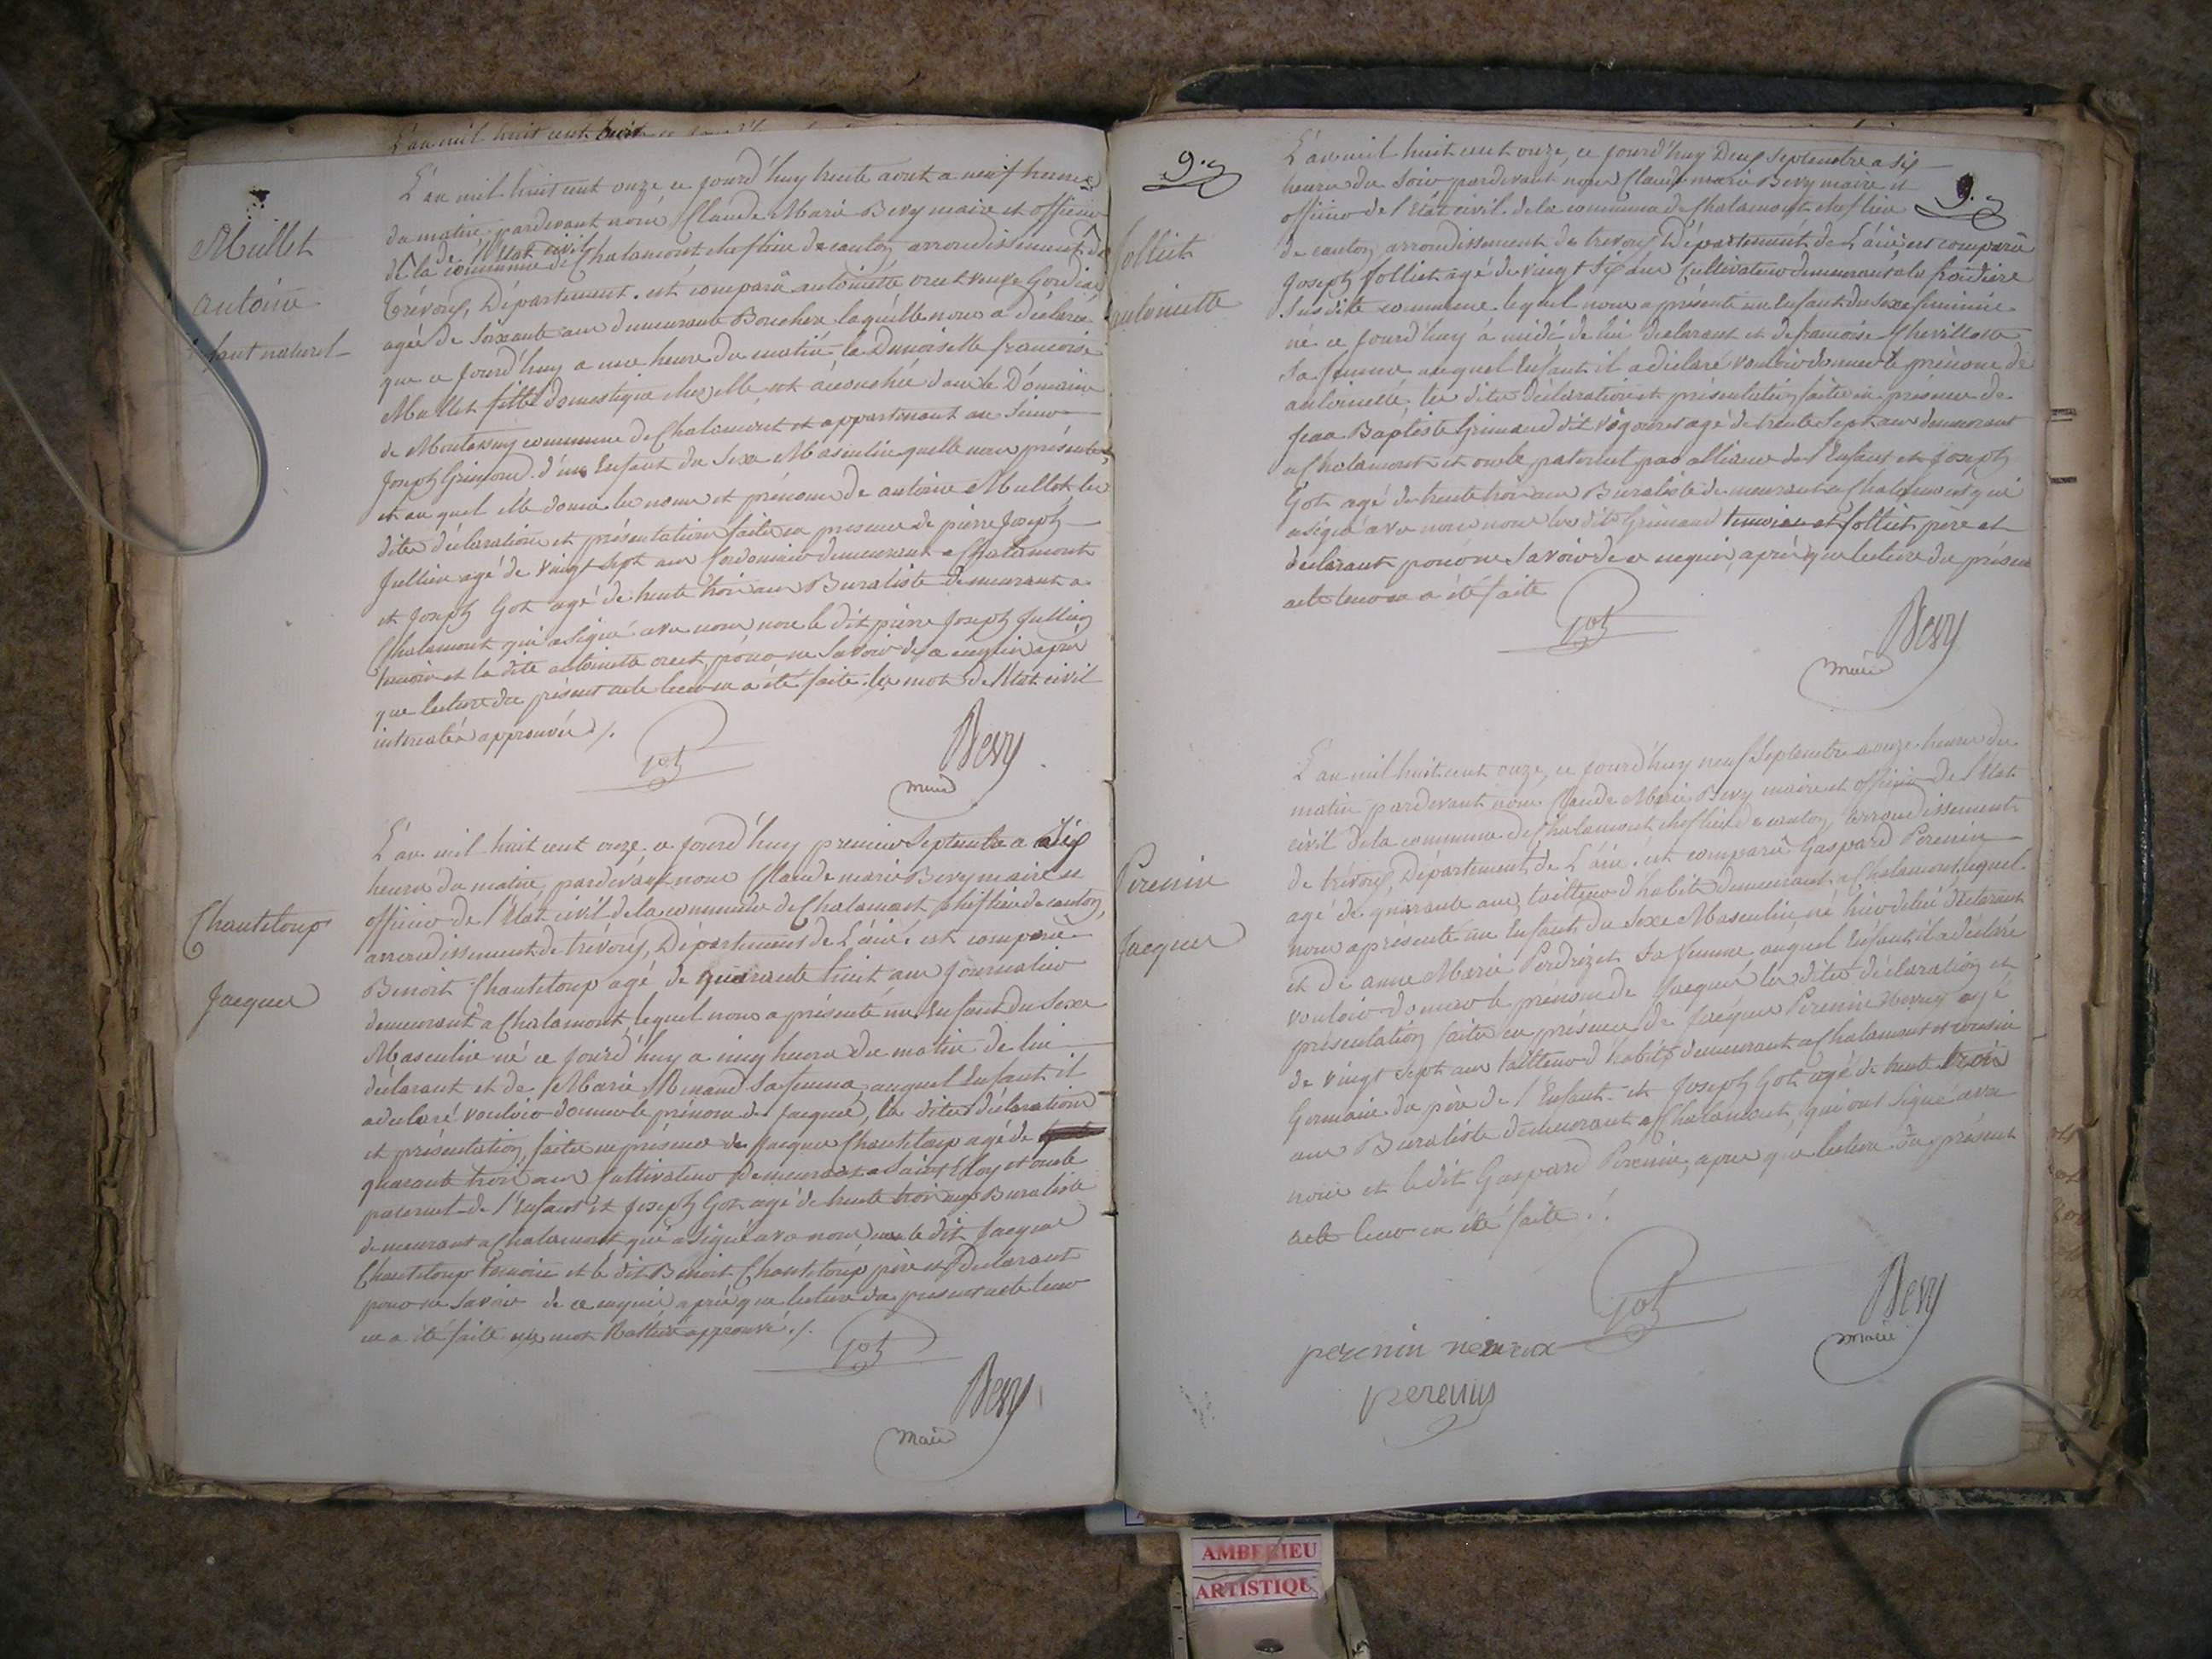 L'an mil huit cent
Mullet
antoine
enfant naturel
L'an mil huit cent onze ce jourd'huy trente aout a neuf heures
du matin pardevant nous Claude Marie Bevy maire et officier
de l'Etat civil
de la commune de Chalamont cheflieu de canton, arrondissement de
Trévoux, Département. est comparü antoinette orcet veuve
agée de soixante ans demeurante laquelle nous a déclaré
que ce jourd'huy a une heure du matin la Demoiselle francoise
Mullet fille domestique chez elle est accouchée dans le Domaine
de Montassuy commune de Chalamont et appartenant au Sieur
Joseph Grimaud. d'un Enfant du Sexe Masculin quelle nous présente,
et au quel elle donne les noms et prénoms de antoine Mullet les
dites déclaration et présentation faites en presence de pierre Joseph
Jullien agé de vingt sept ans Cordonnier demeurant a Chalamont
et Joseph Got agé de trente trois ans Buraliste demeurant a
Chalamont qui a signé avec nous non le dit pierre Joseph Jullien
temoin et la dite antoinette orcet pour ne savoir de ce enquis après
que lecture du présent acte leur en a été faite. les mots de l'Etat civil
intercalés approuvés ./.
Got
Bevy
maire
Chanteloup
Jacques
L'an mil huit cent onze ce jourd'huy premier Septembre a six
heures du matin, pardevant nous Claude marie Bevy maire et
officier de l'Etat civil de la commune de Chalamont cheflieu de canton,
arrondissement de trévoux, Département de L'ain. est comparü
Benoit Chanteloup agé de quarante huit ans Journalier
demeurant a Chalamont lequel nous a présenté un Enfant du Sexe
Masculin né ce jourd'huy a cinq heures du matin de lui
déclarant et de Marie Minaud sa femme, auquel Enfant il
a déclaré vouloir donner le prénom de Jacques, les dites déclaration
et présentation, faites en présence de Jacques Chanteloup agé de
quarante trois ans Cultivateur demeurant a Saint Eloy et oncle
paternel de l'Enfant et Joseph Got agé de trente trois ans Buraliste
demeurant a Chalamont qui a signé avec nous non le dit Jacques
Chanteloup temoin et le dit Benoit Chanteloup père et Déclarant
pour ne savoir de ce enquis après que lecture du present acte leur
en a été faite mot approuvé ./.
Got
Bevy
maire
9.
9.
follict
antoinette
L'an mil huit cent onze, ce jourd'huy Deux Septembre a six
heures du soir pardevant nous Claude marie Bevy maire et
officier de l'Etat civil de la commune de Chalamont cheflieu
de canton, arrondissement de trevoux, Département de L'ain est comparü
Joseph follict agé de vingt six ans Cultivateur demeurant a la
Susdite commune lequel nous a présenté un Enfant du sexe feminin
né ce jourd'huy à midi de lui declarant et de francoise
sa femme auquel Enfant il a déclaré vouloir donner le prénom de
antoinette, les dites Déclaration et présentation faites en presence de
Jean Baptiste Grimaud dit agé de trente Sept ans demeurant
a Chalamont et oncle paternel par alliance de l'Enfant et Joseph
Got agé de trente trois ans Buraliste demeurant a Chalamont qui
a signé avec nous non les dits Grimaud temoin et follict père et
déclarant pour ne savoir de ce enquis, après que lecture du présent
acte leur en a été faite
Got
Bevy
maire
Perenin
Jacques
L'an mil huit cent onze, ce jourd'huy neuf Septembre a onze heures du
matin pardevant nous Claude Marie Bevy maire et officier de l'Etat
civil de la commune de Chalamont cheflieu de canton, arrondissement
de trévoux, Département de L'ain. est comparü Gaspard Perenin
agé de quarante ans, tailleur d'habits demeurant a Chalamont lequel
nous a présenté un Enfant du Sexe Masculin, né hier de lui déclarant
et de anne Marie Perdrizet sa femme, auquel Enfant il a déclaré
vouloir donner le prénom de Jacques les dites déclaration et
présentation faites en présence de Jacques Perenin agé
de vingt sept ans tailleur d'habits demeurant a Chalamont et cousin
Germain du père de l'Enfant et Joseph Got agé de trente trois
ans Buraliste demeurant a Chalamont, qui ont signé avec
nous et le dit Gaspard Perenin, après que lecture du présent
acte leur en été faite ./.
Got
Bevy
maire
perenin
perenin
AMBERIEU
ARTISTIQUE